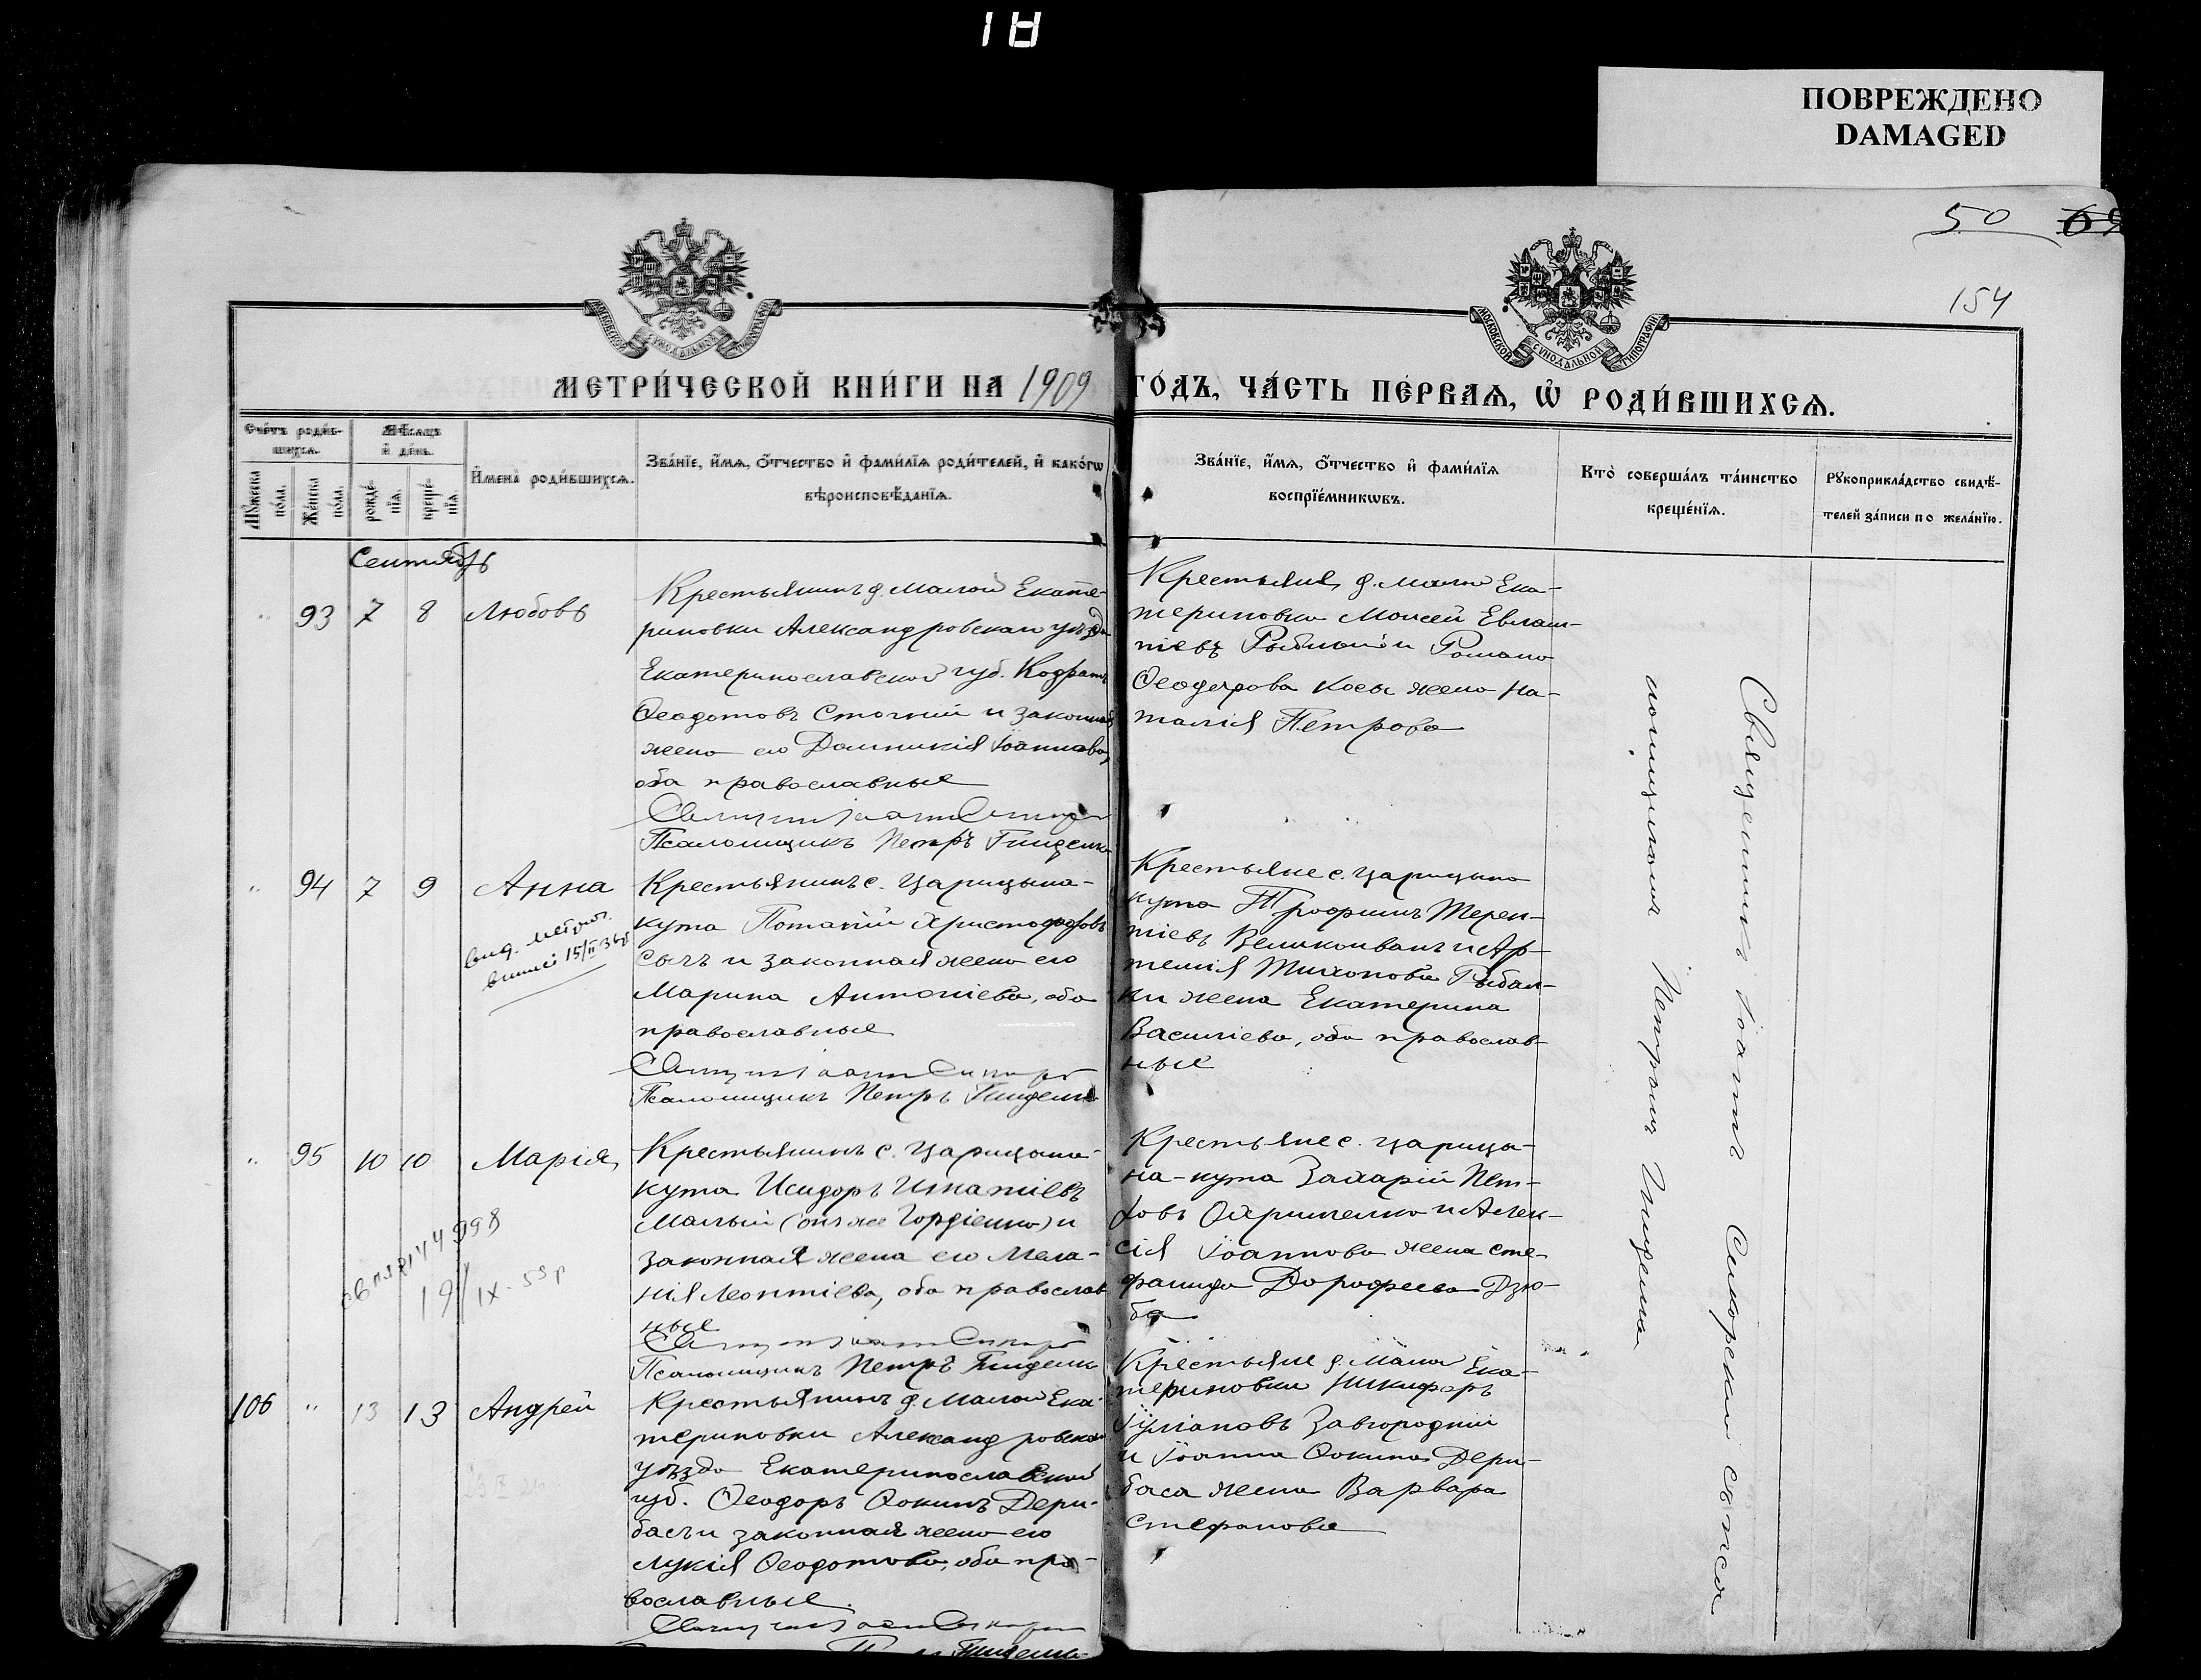 18
ПОВРЕЖДЕНО
DAMAGED
50 69
154
МОСКОВСКОЙ СѴНОДАЛЬНОЙ ТИПОГРАФІИ
МОСКОВСКОЙ СѴНОДАЛЬНОЙ ТИПОГРАФІИ
МЕТРИ́ЧЕСКОЙ КНИ́ГИ НА 1909 ГО́ДЪ, ЧА́СТЬ ПЕ́РВАѦ, Ѡ҆ РОДИ́ВШИХСѦ.
Сче́тъ роди́в-
шихсѧ.
Мꙋ́жеска по́ла.
Же́нска по́ла.
Мѣ́сѧцъ
и҆ де́нь.
рожде́-
нїѧ.
креще́-
нїѧ.
И҆мена̀ роди́вшихсѧ.
Зва́нїе, и҆́мѧ, ѻ҆́тчество и҆ фами́лїѧ роди́телей, и҆ како́гѡ
вѣроисповѣ́данїѧ.
Зва́нїе, и҆́мѧ, ѻ҆́тчество и҆ фами́лїѧ
воспрїе́мникѡвъ.
Кто̀ соверша́лъ та́инство
креще́нїѧ.
Рꙋкоприкла́дство свидѣ́-
телей за́писи по жела́нїю.
Сентябрь
" 93 7 8 Любовь
Крестьянинъ д. Малой Екате-
риновки Александровскаго уѣзда
Екатеринославской губ. Кодратъ
Ѳеодотовъ Стогній и законная
жена его Домникія Іоаннова,
оба православные
Псаломщикъ Петръ Гниденко
Крестьяне д. Малой Ека-
териновки Моисей Евлам-
піевъ Рыбалка и Романа
Ѳеодорова Косы жена На-
талія Петрова
" 94 7 9 Анна
вид. метрич.
виписі 15/II 36р
Крестьянинъ с. Царицына-
кута Потапій Христофоровъ
Сычъ и законная жена его
Марина Антоніева, оба
православные
Псаломщикъ Петръ Гниденко
Крестьяне с. Царицына
кута Трофимъ Терен-
тіевъ Великоиванъ и Ар-
темія Тихонова Рыбал-
ки жена Екатерина
Василіева, оба православ-
ные
" 95 10 10 Марія
19/IX-55р
Крестьянинъ с. Царицына-
кута Исидоръ Игнатіевъ
Малый (онъ же Гордіенко) и
законная жена его Мела-
нія Леонтіева, оба православ
ные
Псаломщикъ Петръ Гниденко
Крестьяне с. Царицы-
на-кута Захарій Пет-
ровъ Охрименко и Алек-
сія Іоаннова жена Сте-
фанида Дорофеева Дзю-
ба
106 " 13 13 Андрей
Крестьянинъ д. Малой Ека-
териновки Александровскаго
уѣзда Екатеринославской
губ. Ѳеодоръ Ѳокинъ Дери-
басъ и законная жена его
Лукія Ѳеодотова, оба пра-
вославные.
Крестьяне д. Малой Ека-
териновки Никифоръ
Іуліановъ Завгородній
и Іоанна Ѳокина Дери-
баса жена Варвара
Стефанова
Священникъ Іоаннъ Сикорскій съ псал
ломщикомъ Петромъ Гниденко